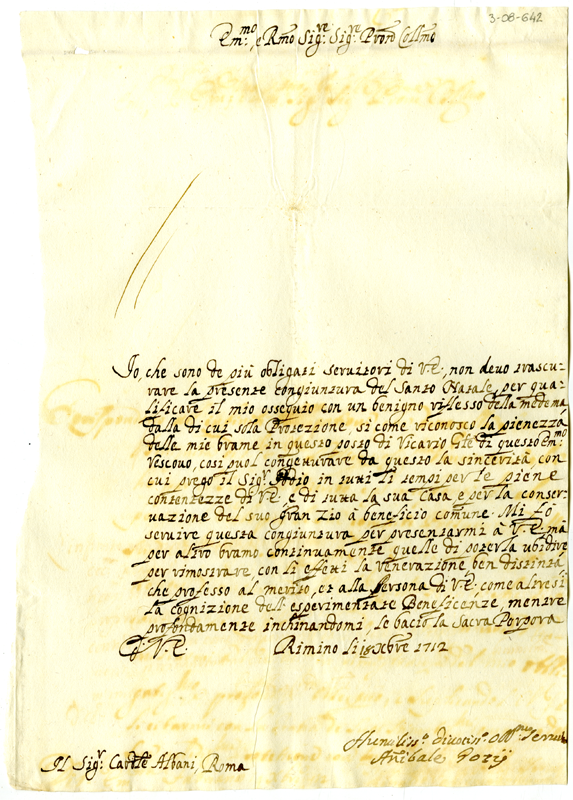 3-08-642
Em.mo e Rmo Sig.re Sig.re Pron Collmo
Io, che sono de più obligati servitori di V.E., non devo trascu-
rare la presente congiuntura del Santo Natale, per qua-
lificare il mio ossequio con un benigno riflesso della medema,
dalla di cui sola Protezione, si come riconosco la pienezza
delle mie brame in questo posto di Vicario Gle di questo Em.mo
Vescovo, così puol congetturare da questo la sincerità con
cui prego il Sig.r Iddio in tutti li tempi per le piene
contentezze di V.E. e di tutta la sua Casa, e per la conser-
vazione del suo gran Zio à beneficio comune. Mi fò
servire questa congiuntura per presentarmi à V.E. mà
per altro bramo continuamente quelle di poterla ubidire
per rimostrare, con li effetti la venerazione ben distinta,
che professo al merito, et alla Persona di V.E. come altresì
la cognizione dell'esperimentate Beneficenze, mentre
profondamente inchinandomi, le bacio la Sacra Porpora
Di V.E. Rimino li Xbre 1712
Humiliss.o Divotiss.o Obl. Servit.
Anibale Pozij
Il Sig.r Cardle Albani, Roma